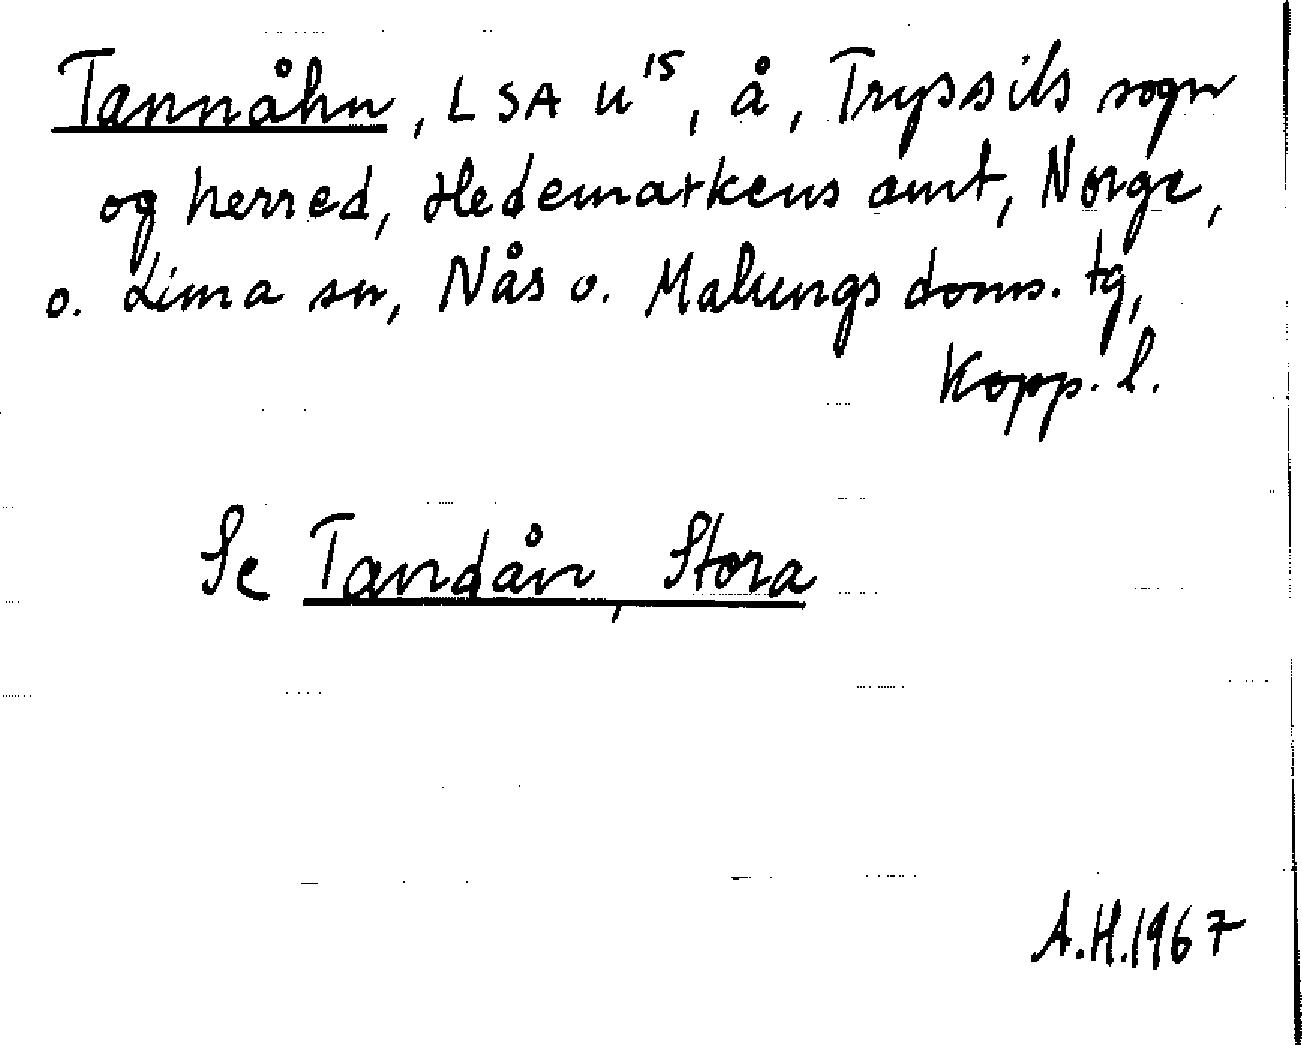 Tannåhn, LSA U¹⁵, å, Tryssils sogn
og herred, Hedemarkens amt, Norge,
o. Lima sn, Nås o. Malungs doms. tg,
Kopp. l.
Se Tandån, Stora
A.H.1967